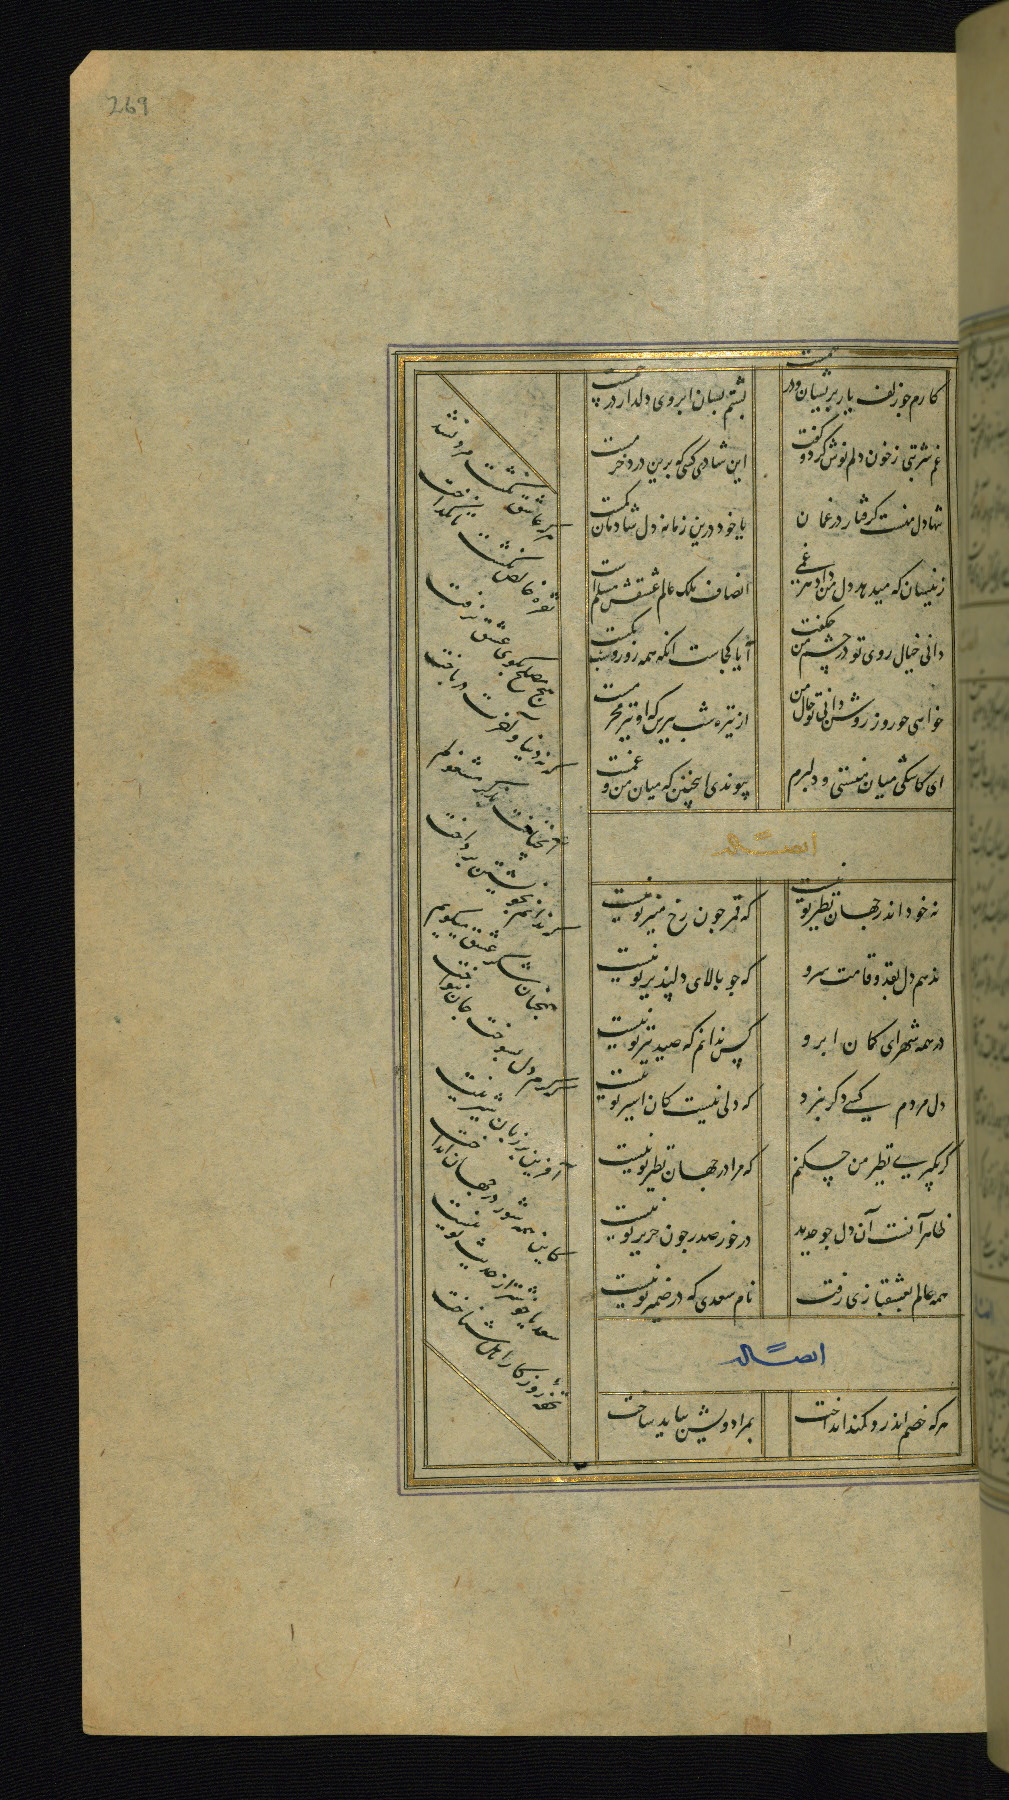 269
کارم چو زلف یار پریشان و درهمست
پشتم بسان ابروی دلدار در خمست
غم شربتی ز خون دلم نوش کرد و گفت
این شادی کسی که برین در خرمست
تنها دل منست گرفتار در غمان
یا خود درین زمانه دل شادمان کمست
زینسان که میدهد دل من داد هر غمی
انصاف ملک عالم عشقش مسلمست
دانی خیال روی تو در چشم من چه گفت
آیا کجاست انکه همه روز و شب
خواهی چو روز روشن دانی تو حال من
از تیره شب بپرس که او نیز محرمست
ای کاشکی میان منستی و دلبرم
پیوندی اینچنین که میان من و غمست
ایضا له
نه خود اندر جهان نظیر تو نیست
که قمر چون رخ منیر تو نیست
ندهم دل بقد و قامت سرو
که چو بالای دلپذیر تو نیست
در همه شهر ای کمان ابرو
کس ندانم که صید تیر تو نیست
دل مردم کسی دگر نبرد
که دلی نیست کان اسیر تو نیست
گر بگیری نظیر من چکنم
که مرا در جهان نظیر تو نیست
ظاهر آنست آن دل چو حدید
در خور صدر چون حریر تو نیست
همه عالم بعشقبازی رفت
نام سعدی که در ضمیر تو نیست
ایضا له
هر که خصم اندر و کمند انداخت
بمراد ویش بباید ساخت
هر که عاشق نگشت مرد نشد
نقره خالص نگشت تا نگداخت
هیچ مصلح بکوی عشق نرفت
که نه دنیا و آخرت درباخت
آنچنانش بذکر مشغولم
که ندانم بخویشتن پرداخت
همچنان شکر عشق میگویم
که گرم دل بسوخت جان بنواخت
آفرین بر زبان شیرینت
کاین همه شور در جهان انداخت
سعدیا خوشتر از حدیث تو نیست
تحفه روزگار اهل شناخت